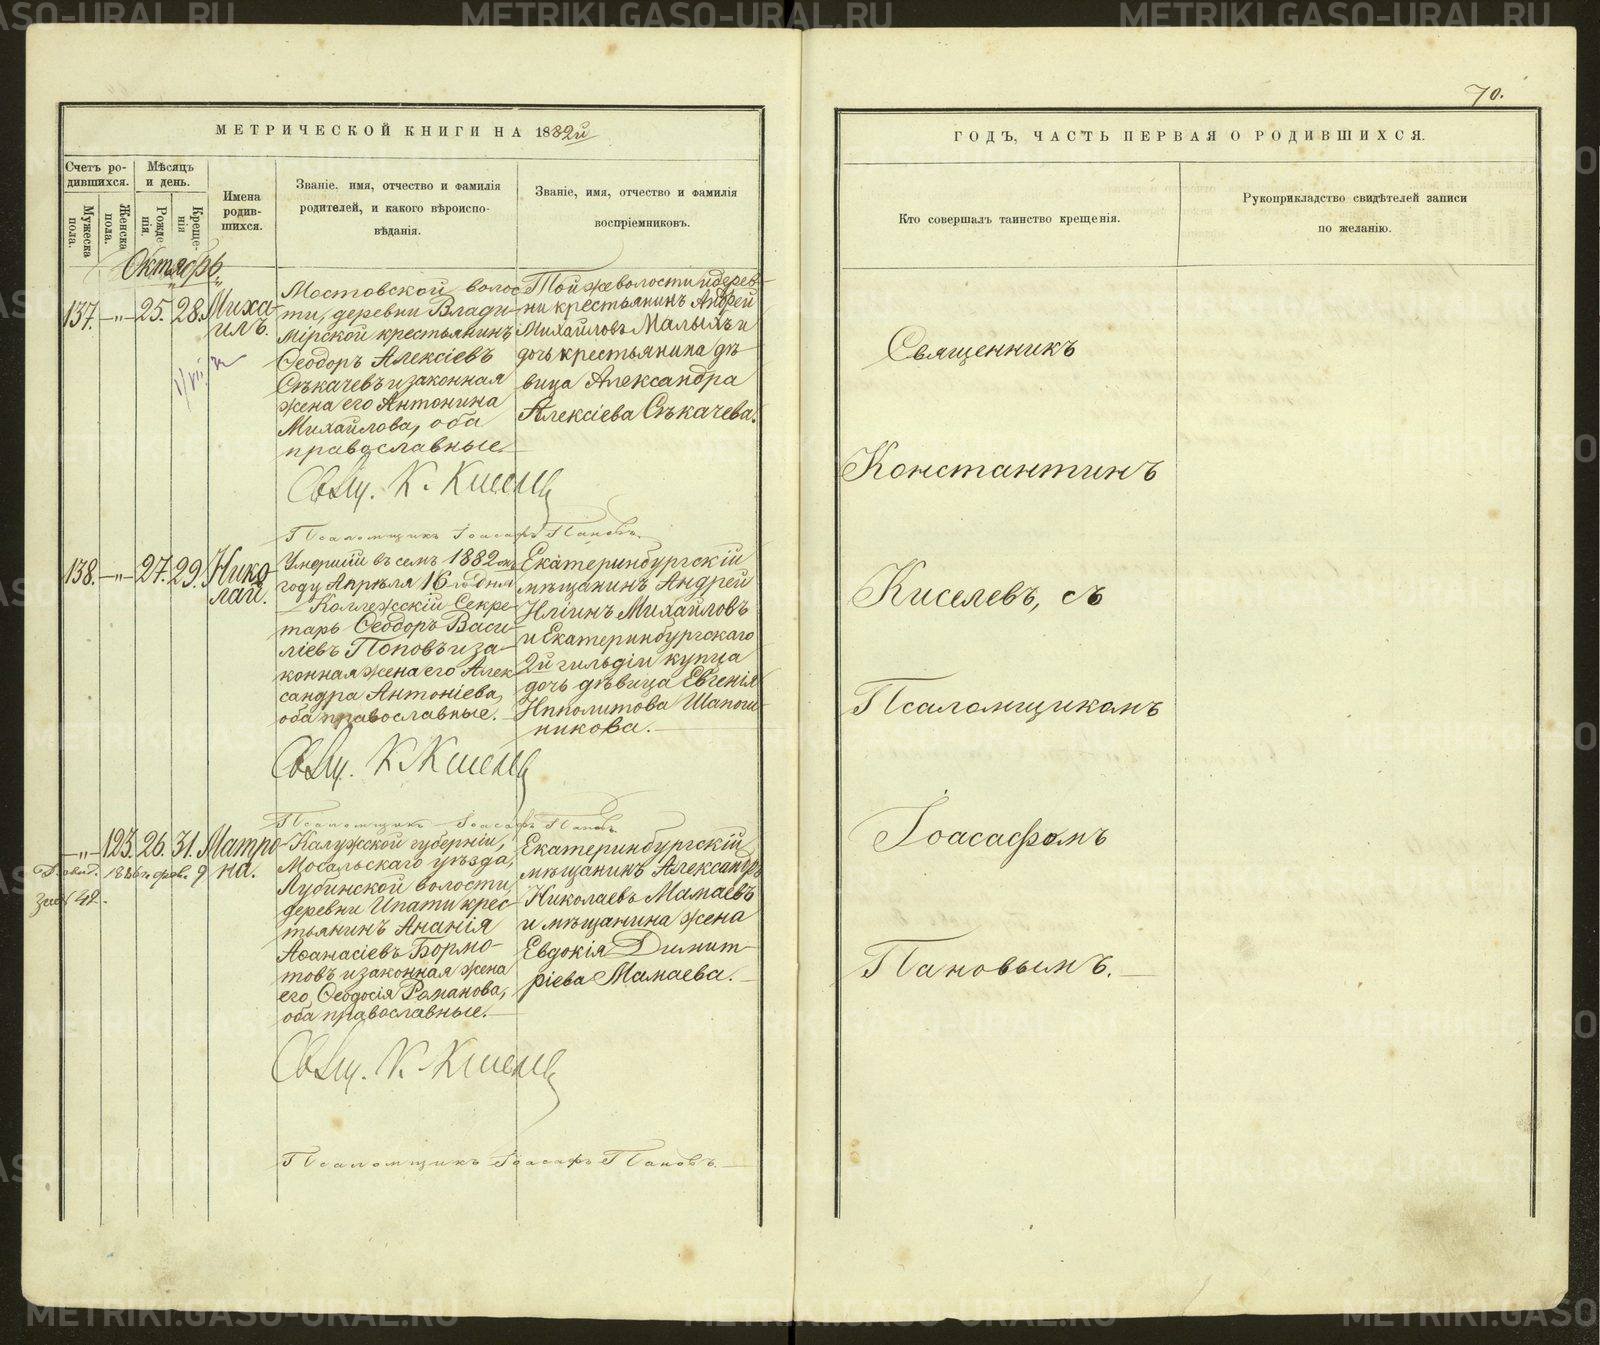 70.
МЕТРИЧЕСКОЙ КНИГИ НА 1882й
Счетъ ро-
дившихся.
Мужеска
пола.
Женска
пола.
Мѣсяцъ
и день.
Рожде-
нія.
Креще-
нія
Имена
родив-
шихся.
Званіе, имя, отчество и фамилія
родителей, и какого вѣроиспо-
вѣданія.
Званіе, имя, отчество и фамилія
воспріемниковъ.
Октябрь
137. —„— 25. 28. Миха-
илъ.
Мостовской волос-
ти, деревни Влади-
мірской крестьянинъ
Ѳеодоръ Алексіевъ
Сѣкачевъ и законная
жена его Антонина
Михайлова, оба
православные.
Той же волости и дерев-
ни крестьянинъ Андрей
Михайловъ Малыхъ и
дочь крестьянина дѣ-
вица Александра
Алексіева Сѣкачева.
Свящ. К. Киселевъ
Псаломщикъ Іоасафъ Пановъ.
138. —„— 27. 29. Нико-
лай.
Умершій въ семъ 1882мъ
году Апрѣля 16го дня
Коллежскій Секре-
тарь Ѳеодоръ Васи-
ліевъ Поповъ и за-
конная жена его Алек-
сандра Антоніева,
оба православные.
Екатеринбургскій
мѣщанинъ Андрей
Иліинъ Михайловъ
и Екатеринбургскаго
2й гильдіи купца
дочь дѣвица Евгенія
Ипполитова Шапош-
никова.
Свящ. К. Киселевъ
Псаломщикъ Іоасафъ Пановъ
—„— 123. 26. 31. Матро-
на.
1886 г. фев. 9
Калужской губерніи,
Мосальскаго уѣзда,
Лубинской волости,
деревни Ипати крес-
тьянинъ Ананія
Аѳанасіевъ Бормо-
товъ и законная жена
его, Ѳеодосія Романова,
оба православные.
Екатеринбургскій
мѣщанинъ Александръ
Николаевъ Мамаевъ
и мѣщанина жена
Евдокія Димит-
ріева Мамаева.
Свящ. К. Киселевъ
Псаломщикъ Іоасафъ Пановъ.
ГОДЪ, ЧАСТЬ ПЕРВАЯ О РОДИВШИХСЯ.
Кто совершалъ таинство крещенія.
Рукоприкладство свидѣтелей записи
по желанію.
Священникъ
Константинъ
Киселевъ, съ
Псаломщикомъ
Іоасафомъ
Пановымъ.
METRIKI.GASO-URAL.RU